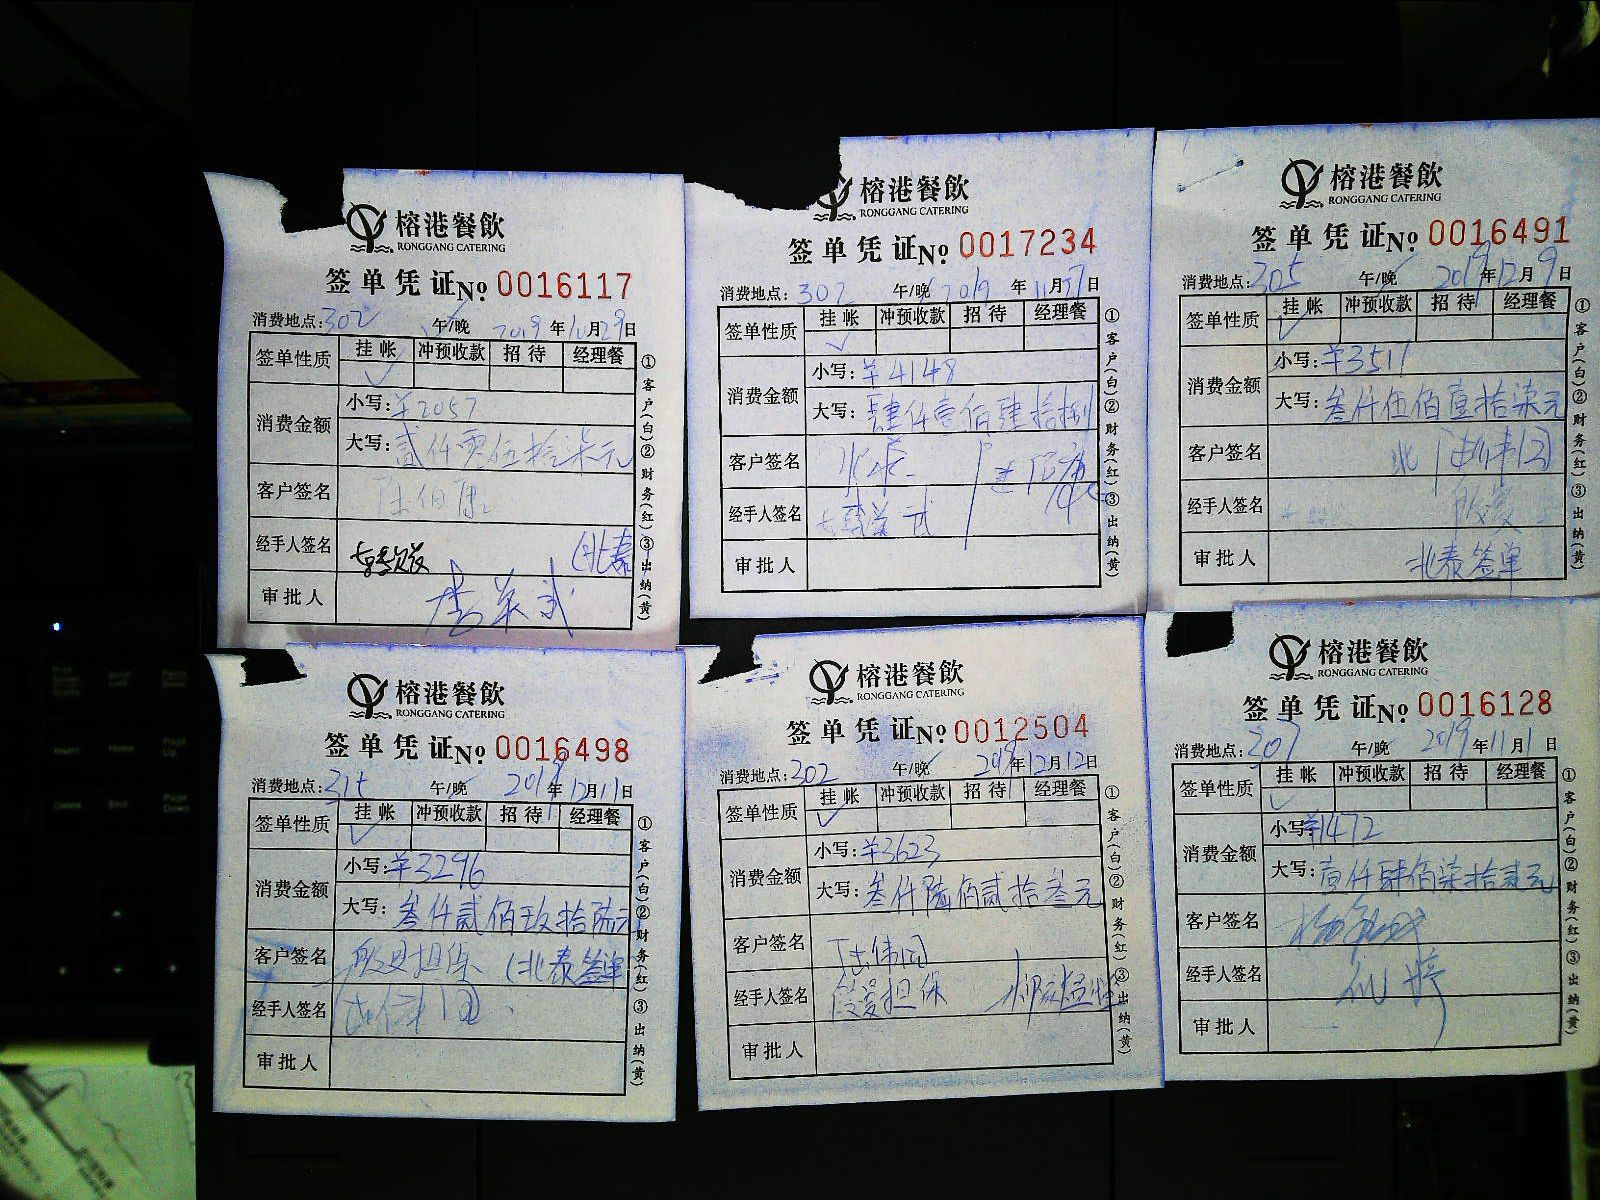 榕港餐飲
RONGGANG CATERING
签单凭证No 0016117
消费地点:302 午/晚 2019年10月29日
签单性质 挂帐 冲预收款 招待 经理餐
消费金额 小写:¥2057
大写:贰仟零伍拾柒元
客户签名
经手人签名 (北泰
审批人 李荣武
①客户(白)②财务(红)③出纳(黄)
榕港餐飲
RONGGANG CATERING
签单凭证No 0017234
消费地点:302 午/晚 2019年11月7日
签单性质 挂帐 冲预收款 招待 经理餐
消费金额 小写:¥4148
大写:肆仟壹佰肆拾捌
客户签名
经手人签名
审批人
①客户(白)②财务(红)③出纳(黄)
榕港餐飲
RONGGANG CATERING
签单凭证No 0016491
消费地点:305 午/晚 2019年12月9日
签单性质 挂帐 冲预收款 招待 经理餐
消费金额 小写:¥3517
大写:叁仟伍佰壹拾柒元
客户签名
经手人签名
审批人 北泰签单
①客户(白)②财务(红)③出纳(黄)
榕港餐飲
RONGGANG CATERING
签单凭证No 0016498
消费地点:315 午/晚 2019年12月11日
签单性质 挂帐 冲预收款 招待 经理餐
消费金额 小写:¥3296
大写:叁仟贰佰玖拾陆元
客户签名 担保 (北泰签单
经手人签名
审批人
①客户(白)②财务(红)③出纳(黄)
榕港餐飲
RONGGANG CATERING
签单凭证No 0012504
消费地点:302 午/晚 2019年12月12日
签单性质 挂帐 冲预收款 招待 经理餐
消费金额 小写:¥3623
大写:叁仟陆佰贰拾叁元
客户签名
经手人签名 担保
审批人
①客户(白)②财务(红)③出纳(黄)
榕港餐飲
RONGGANG CATERING
签单凭证No 0016128
消费地点:207 午/晚 2019年11月1日
签单性质 挂帐 冲预收款 招待 经理餐
消费金额 小写:¥1472
大写:壹仟肆佰柒拾贰元
客户签名
经手人签名
审批人
①客户(白)②财务(红)③出纳(黄)